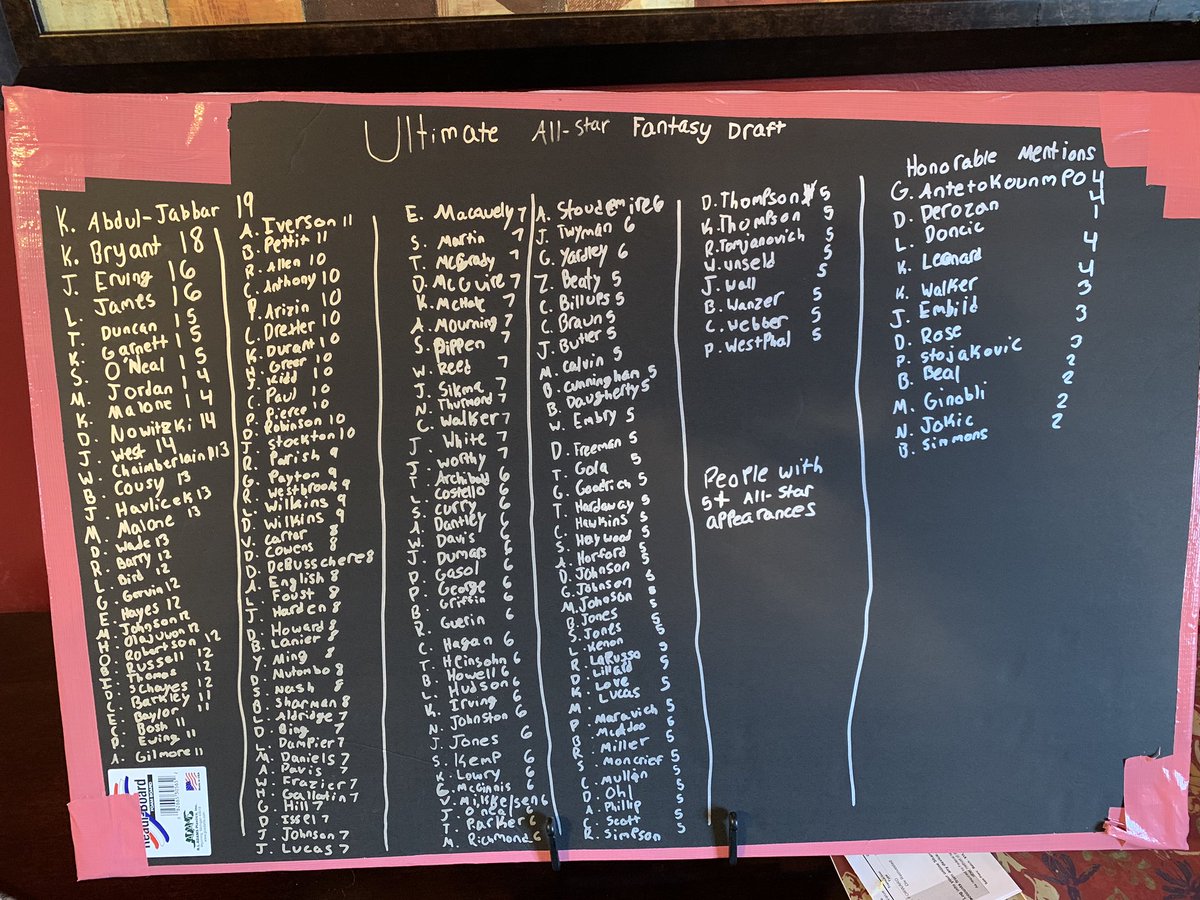 Ultimate All-Star Fantasy Draft
K. Abdul-Jabbar 19
K. Bryant 18
J. Erving 16
L. James 16
T. Duncan 15
K. Garnett 15
S. O'Neal 15
M. Jordan 14
K. Malone 14
D. Nowitzki 14
J. West 14
W. Chamberlain 13
B. Cousy 13
J. Havlicek 13
M. Malone 13
D. Wade 13
R. Barry 12
L. Bird 12
G. Gervin 12
E. Hayes 12
M. Johnson 12
H. Olajuwon 12
O. Robertson 12
B. Russell 12
I. Thomas 12
D. Schayes 12
C. Barkley 11
E. Baylor 11
C. Bosh 11
P. Ewing 11
A. Gilmore 11
A. Iverson 11
B. Pettit 11
R. Allen 10
C. Anthony 10
P. Arizin 10
C. Drexler 10
K. Durant 10
H. Greer 10
J. Kidd 10
C. Paul 10
P. Pierce 10
D. Robinson 10
J. Stockton 10
R. Parish 9
G. Payton 9
R. Westbrook 9
L. Wilkins 9
D. Wilkins 9
V. Carter 8
D. Cowens 8
D. DeBusschere 8
A. English 8
L. Foust 8
J. Harden 8
D. Howard 8
B. Lanier 8
Y. Ming 8
D. Mutombo 8
S. Nash 8
B. Sharman 8
L. Aldridge 7
D. Bing 7
L. Dampier 7
M. Daniels 7
A. Davis 7
W. Frazier 7
H. Gallatin 7
G. Hill 7
D. Issel 7
J. Johnson 7
J. Lucas 7
E. Macauely 7
S. Martin 7
T. McGrady 7
D. McGuire 7
K. McHale 7
A. Mourning 7
S. Pippen 7
W. Reed 7
J. Sikma 7
N. Thurmond 7
C. Walker 7
J. White 7
J. Worthy 7
T. Archibald 6
L. Costello 6
S. Curry 6
A. Dantley 6
W. Davis 6
J. Dumars 6
P. Gasol 6
P. George 6
B. Griffin 6
R. Guerin 6
C. Hagan 6
T. Heinsohn 6
B. Howell 6
L. Hudson 6
K. Irving 6
N. Johnston 6
J. Jones 6
S. Kemp 6
K. Lowry 6
G. McGinnis 6
V. Mikkelsen 6
J. O'neal 6
T. Parker 6
M. Richmond 6
A. Stoudemire 6
J. Twyman 6
G. Yardley 6
Z. Beaty 5
C. Billups 5
C. Braun 5
J. Butler 5
M. Calvin 5
B. Cunningham 5
B. Daugherty 5
W. Embry 5
D. Freeman 5
T. Gola 5
G. Goodrich 5
T. Hardaway 5
C. Hawkins 5
S. Haywood 5
A. Horford 5
D. Johnson 5
G. Johnson 5
M. Johnson 5
B. Jones 5
S. Jones 5
L. Kenon 5
R. LaRusso 5
D. Lillard 5
K. Love 5
M. Lucas 5
P. Maravich 5
B. McAdoo 5
R. Miller 5
S. Moncrief 5
C. Mullin 5
D. Ohl 5
A. Phillip 5
C. Scott 5
R. Simpson 5
D. Thompson 5
K. Thompson 5
R. Tomjanovich 5
W. Unseld 5
J. Wall 5
B. Wanzer 5
C. Webber 5
P. Westphal 5
People with
5+ All-Star
appearances
Honorable Mentions
G. Antetokounmpo 4
D. Derozan 4
L. Doncic 1
K. Leonard 4
K. Walker 4
J. Embiid 3
D. Rose 3
P. Stojakovic 3
B. Beal 2
M. Ginobli 2
N. Jokic 2
B. Simmons 2
ReadiBoard